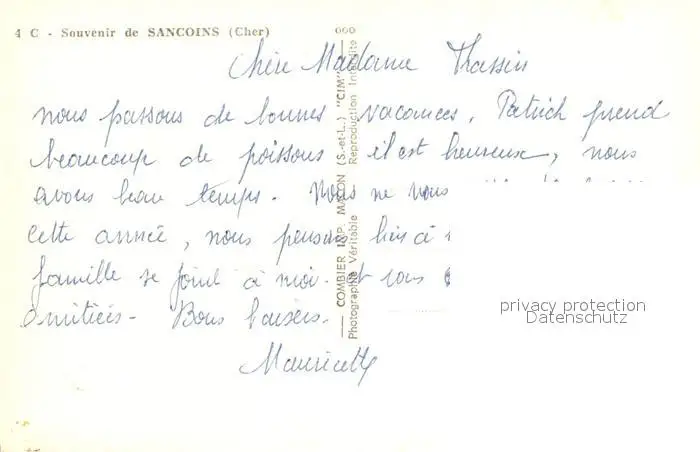 4 C - Souvenir de SANCOINS (Cher)
Chère Madame Thassin
nous passons de bonnes vacances, Patrick prend
beaucoup de poissons il est heureux, nous
avons beau temps. Nous ne nous
cette année, nous pensons bien à
famille se joint à moi. et vous
amitiés. Bons baisers.
Mauricette
COMBIER IMP. MACON (S.-et-L.) "CIM"
Photographie Véritable Reproduction Interdite
privacy protection
Datenschutz